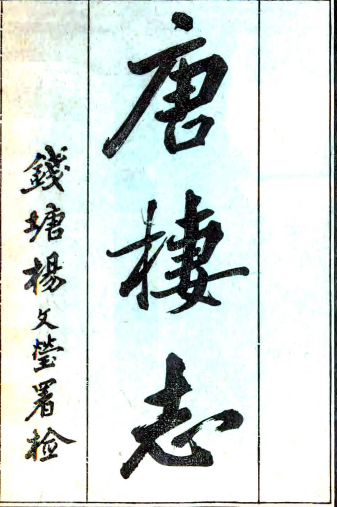 唐棲志
錢塘楊文瑩署檢